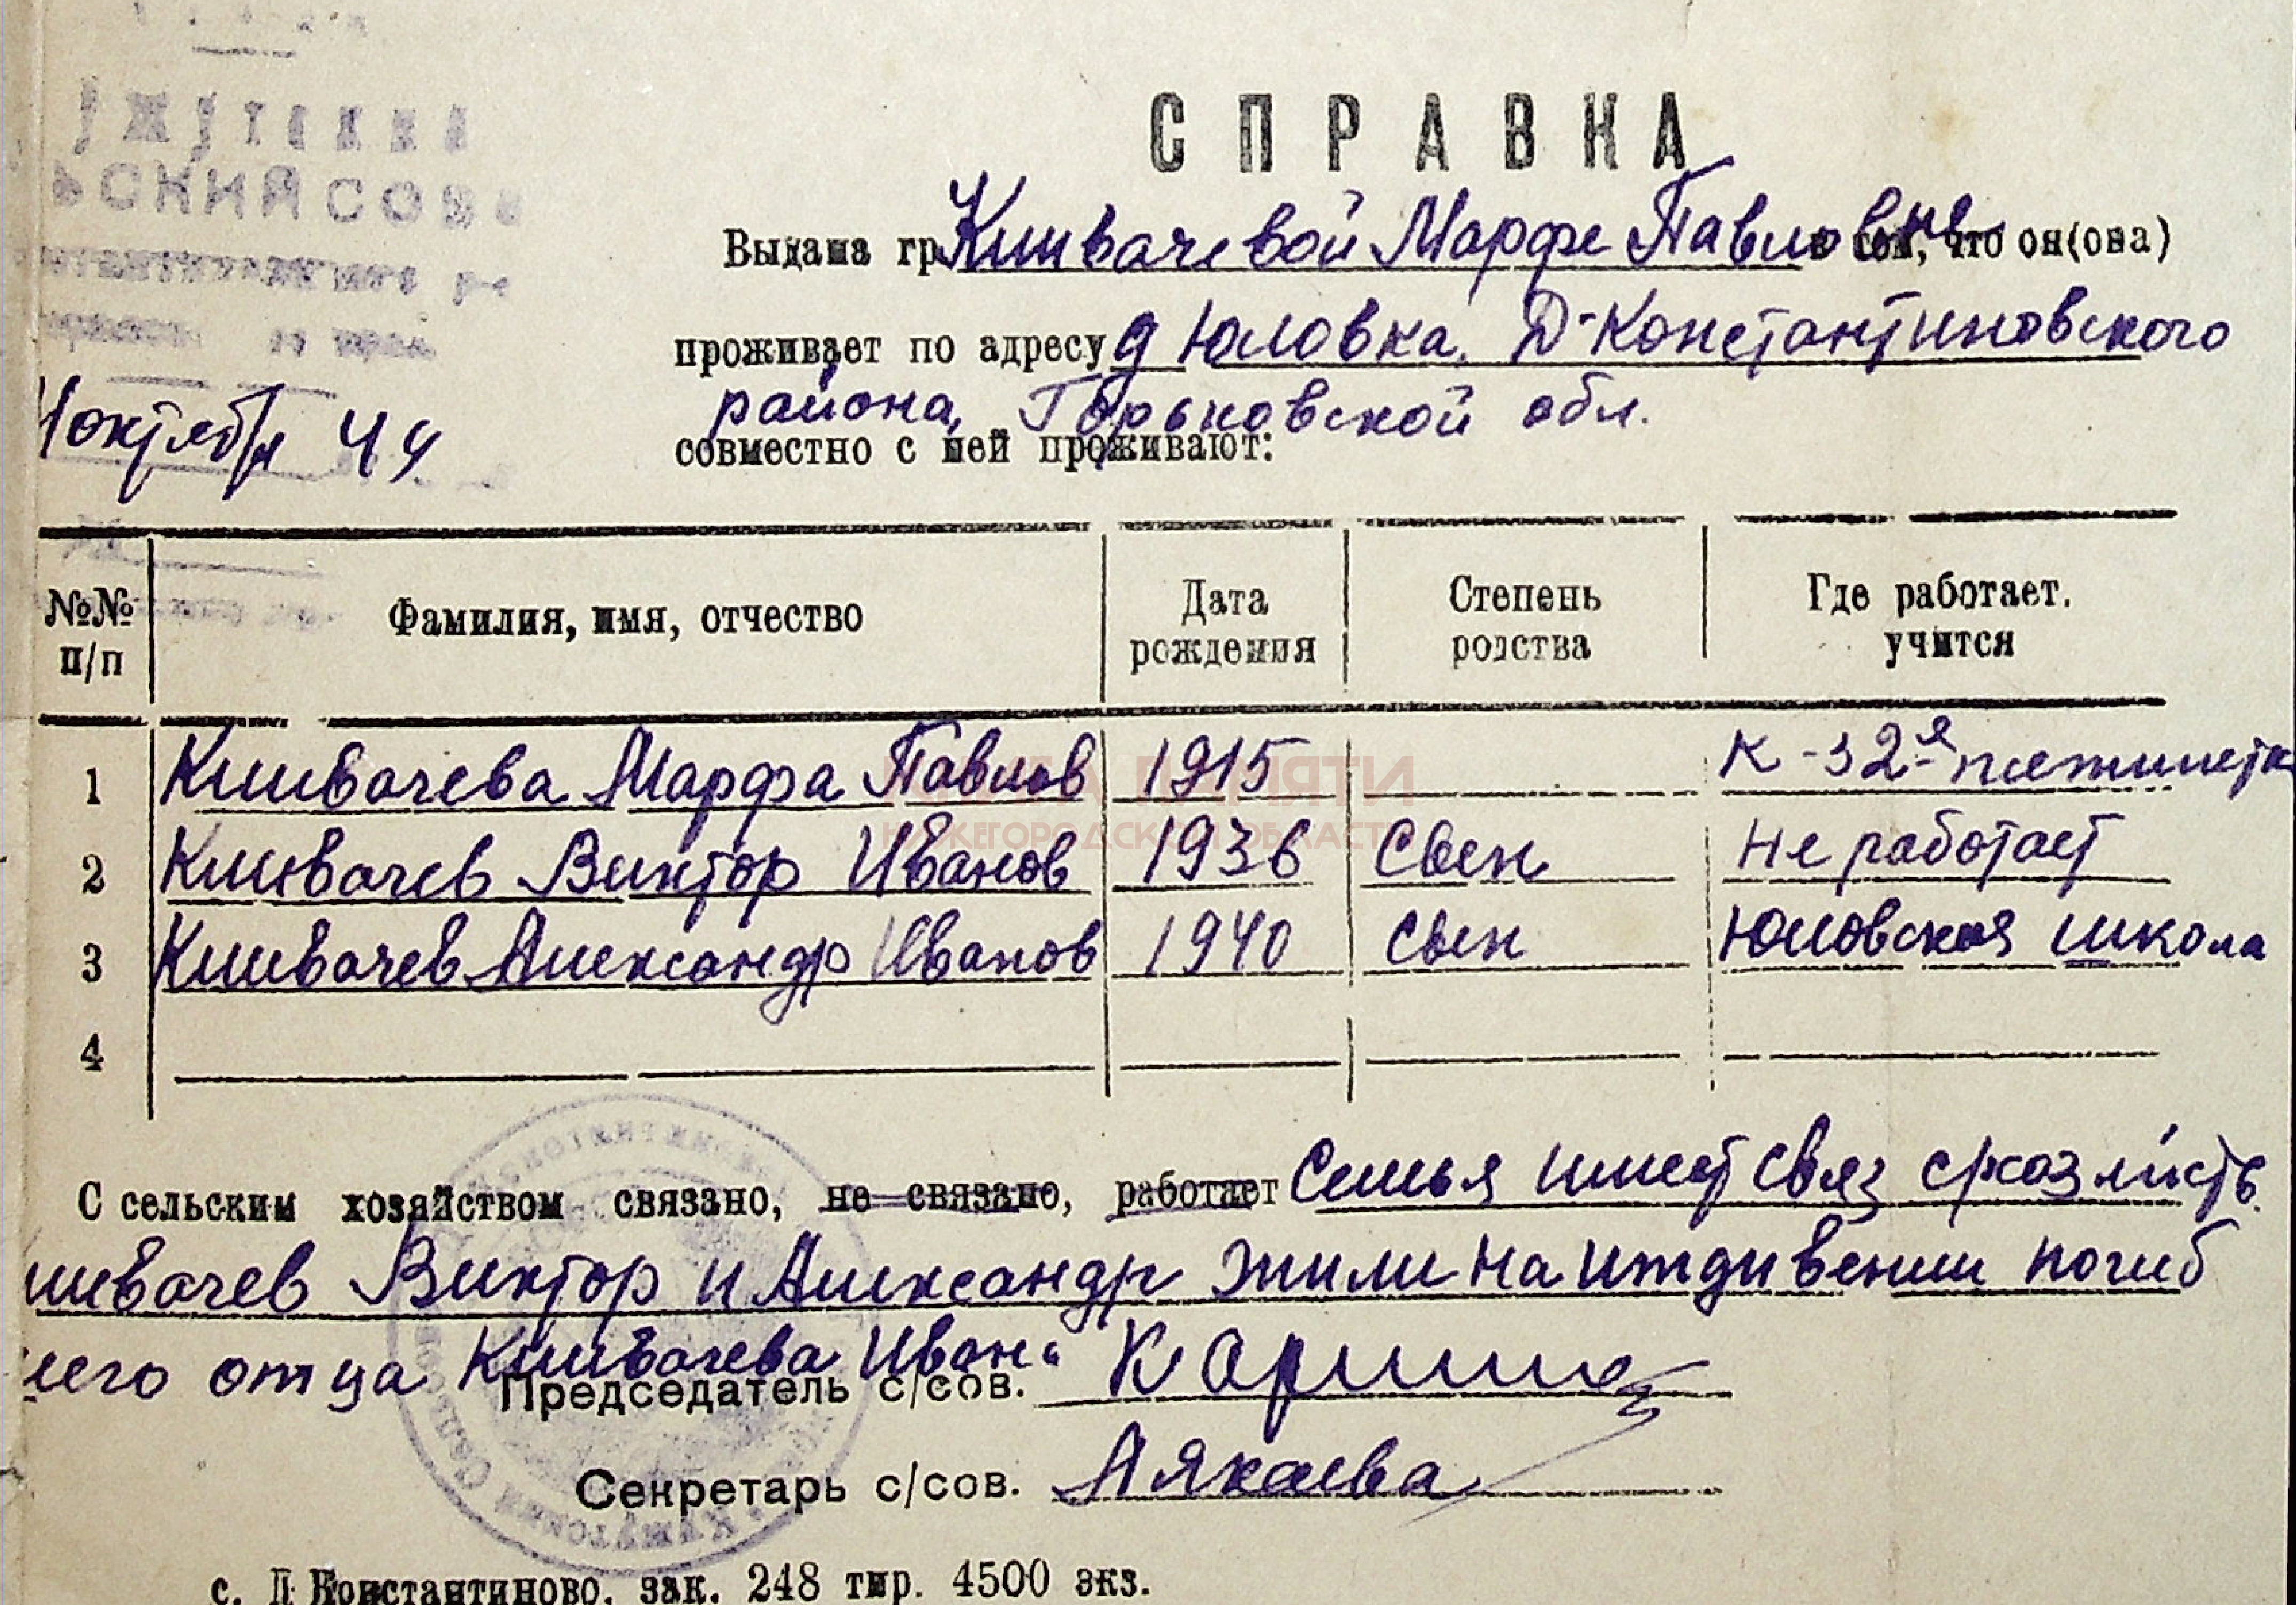 СПРАВКА
ЬСКИЙ СОВЕ
Выдана гр. Кливачевой Марфе Павловне в том, что он(она)
проживает по адресу д Юловка, Д-Константиновского
района, Горьковской обл.
октября 44
совместно с ней проживают:
№№ п/п Фамилия, имя, отчество Дата рождения Степень родства Где работает. учится
1 Кливачева Марфа Павлов 1915 К-з 2-я пятилетка
2 Кливачев Виктор Иванов 1936 Сын Не работает
3 Кливачев Александр Иванов 1940 Сын Юловская школа
4
С сельским хозяйством связано, не связано, работает Семья имеет связ с хозяйств.
ливачев Виктор и Александр жили на иждивении погиб
шего отца Кливачева Ивана
Председатель с/сов. Каришин
Секретарь с/сов. Лякаева
с. Д Константиново, зак. 248 тир. 4500 экз.